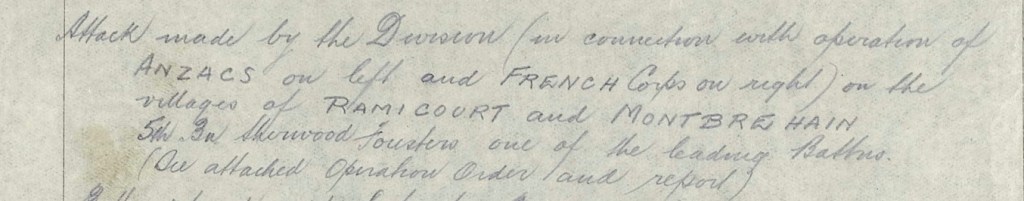 Attack made by the Division (in connection with operation of
ANZACS on left and FRENCH Corps on right) on the
villages of RAMICOURT and MONTBREHAIN
5th Bn Sherwood Foresters one of the leading Battns.
(See attached Operation Order and report)